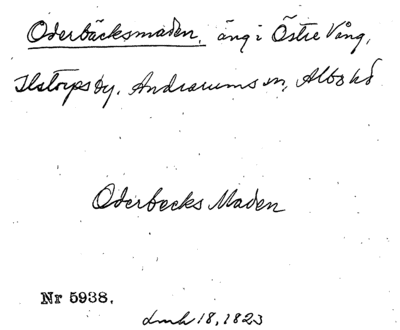 Oderbäcksmaden, äng i Östre Vång,
Ilstorps by, Andrarums sn, Albo hd
Oderbecks Maden
Nr 5938.
lmh 18, 1823